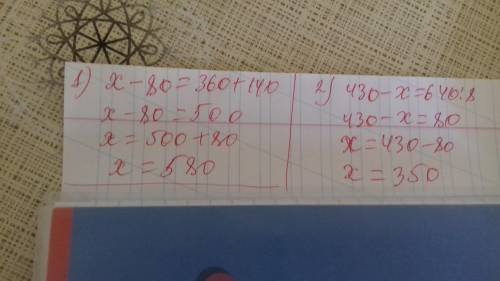 1) x - 80 = 360 + 140
x - 80 = 500
x = 500 + 80
x = 580
2) 430 - x = 640 : 8
430 - x = 80
x = 430 - 80
x = 350